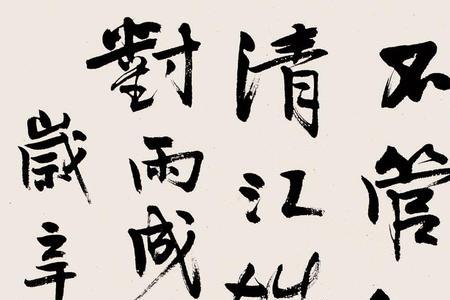 不管
清江
對雨成
歲辛